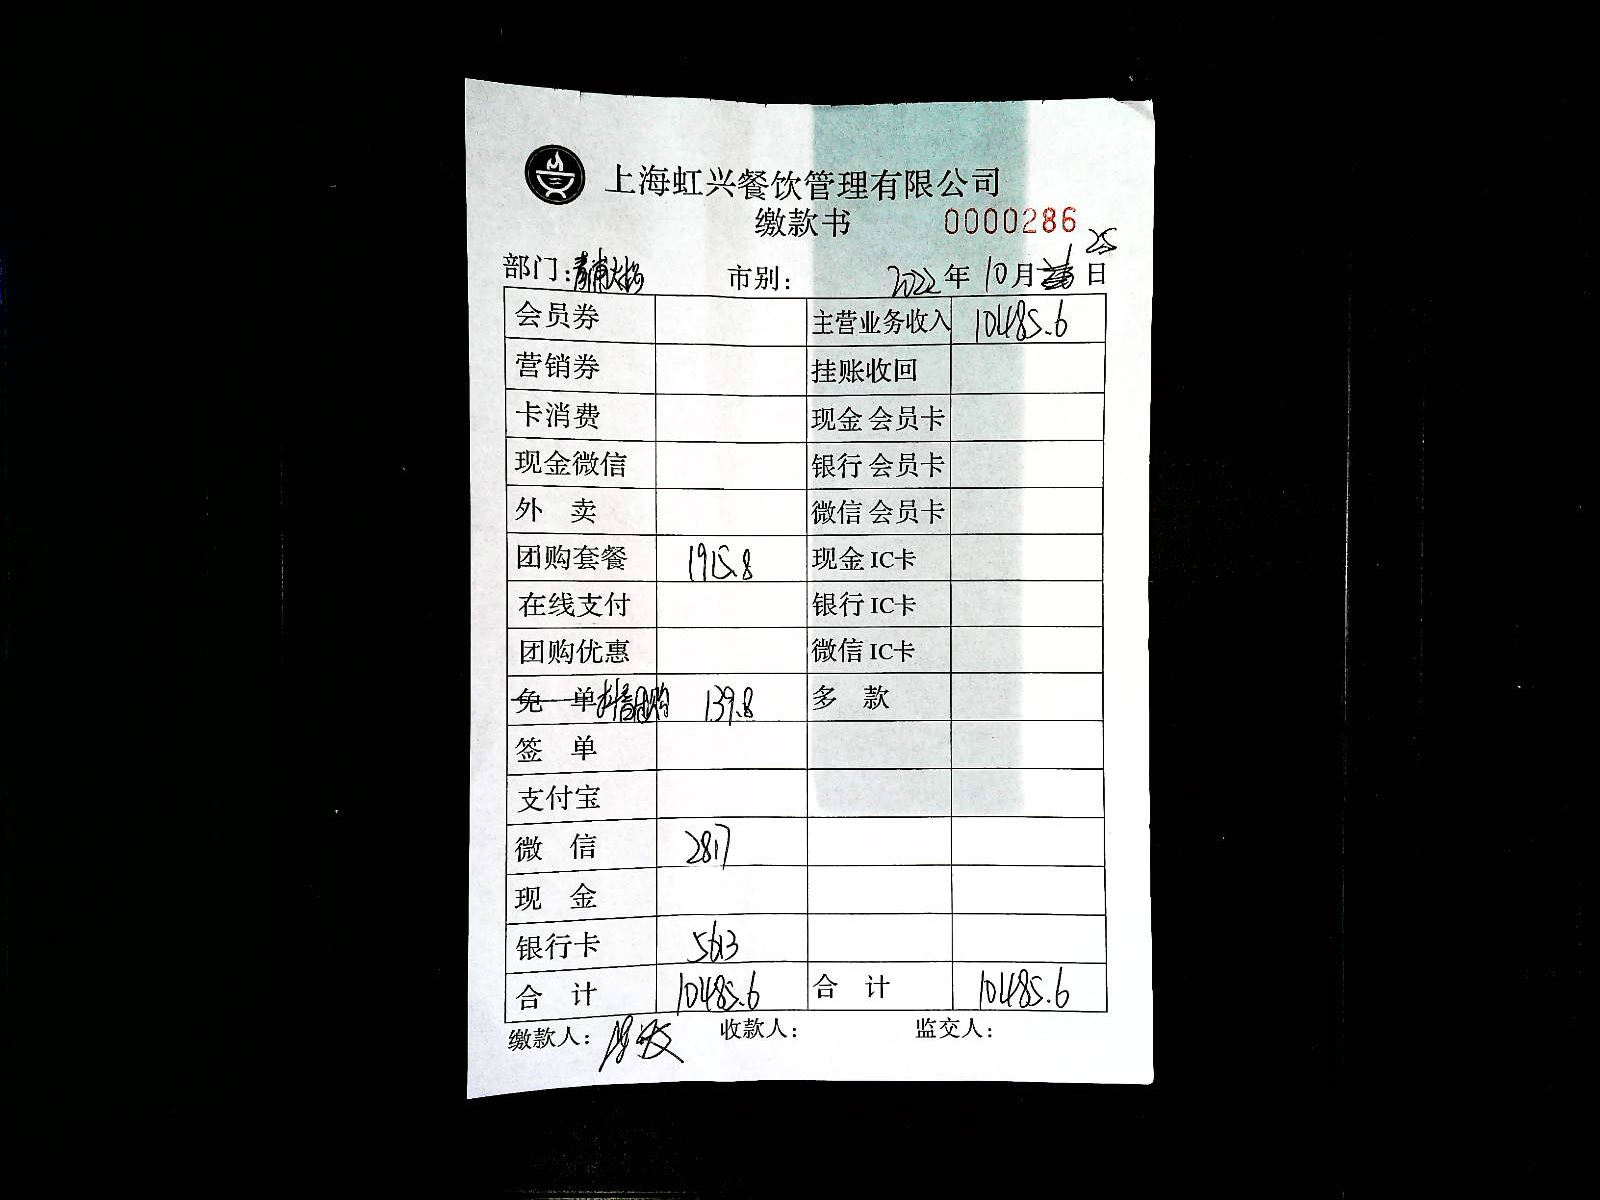 上海虹兴餐饮管理有限公司
缴款书 0000286
部门: 青浦 市别: 2022年10月25日
会员券 主营业务收入 10485.6
营销券 挂账收回
卡消费 现金 会员卡
现金微信 银行 会员卡
外 卖 微信 会员卡
团购套餐 1915.8 现金 IC卡
在线支付 银行 IC卡
团购优惠 微信 IC卡
免 单 抖音团购 139.8 多 款
签 单
支付宝
微 信 2817
现 金
银行卡 5613
合 计 10485.6 合 计 10485.6
缴款人: 收款人: 监交人: